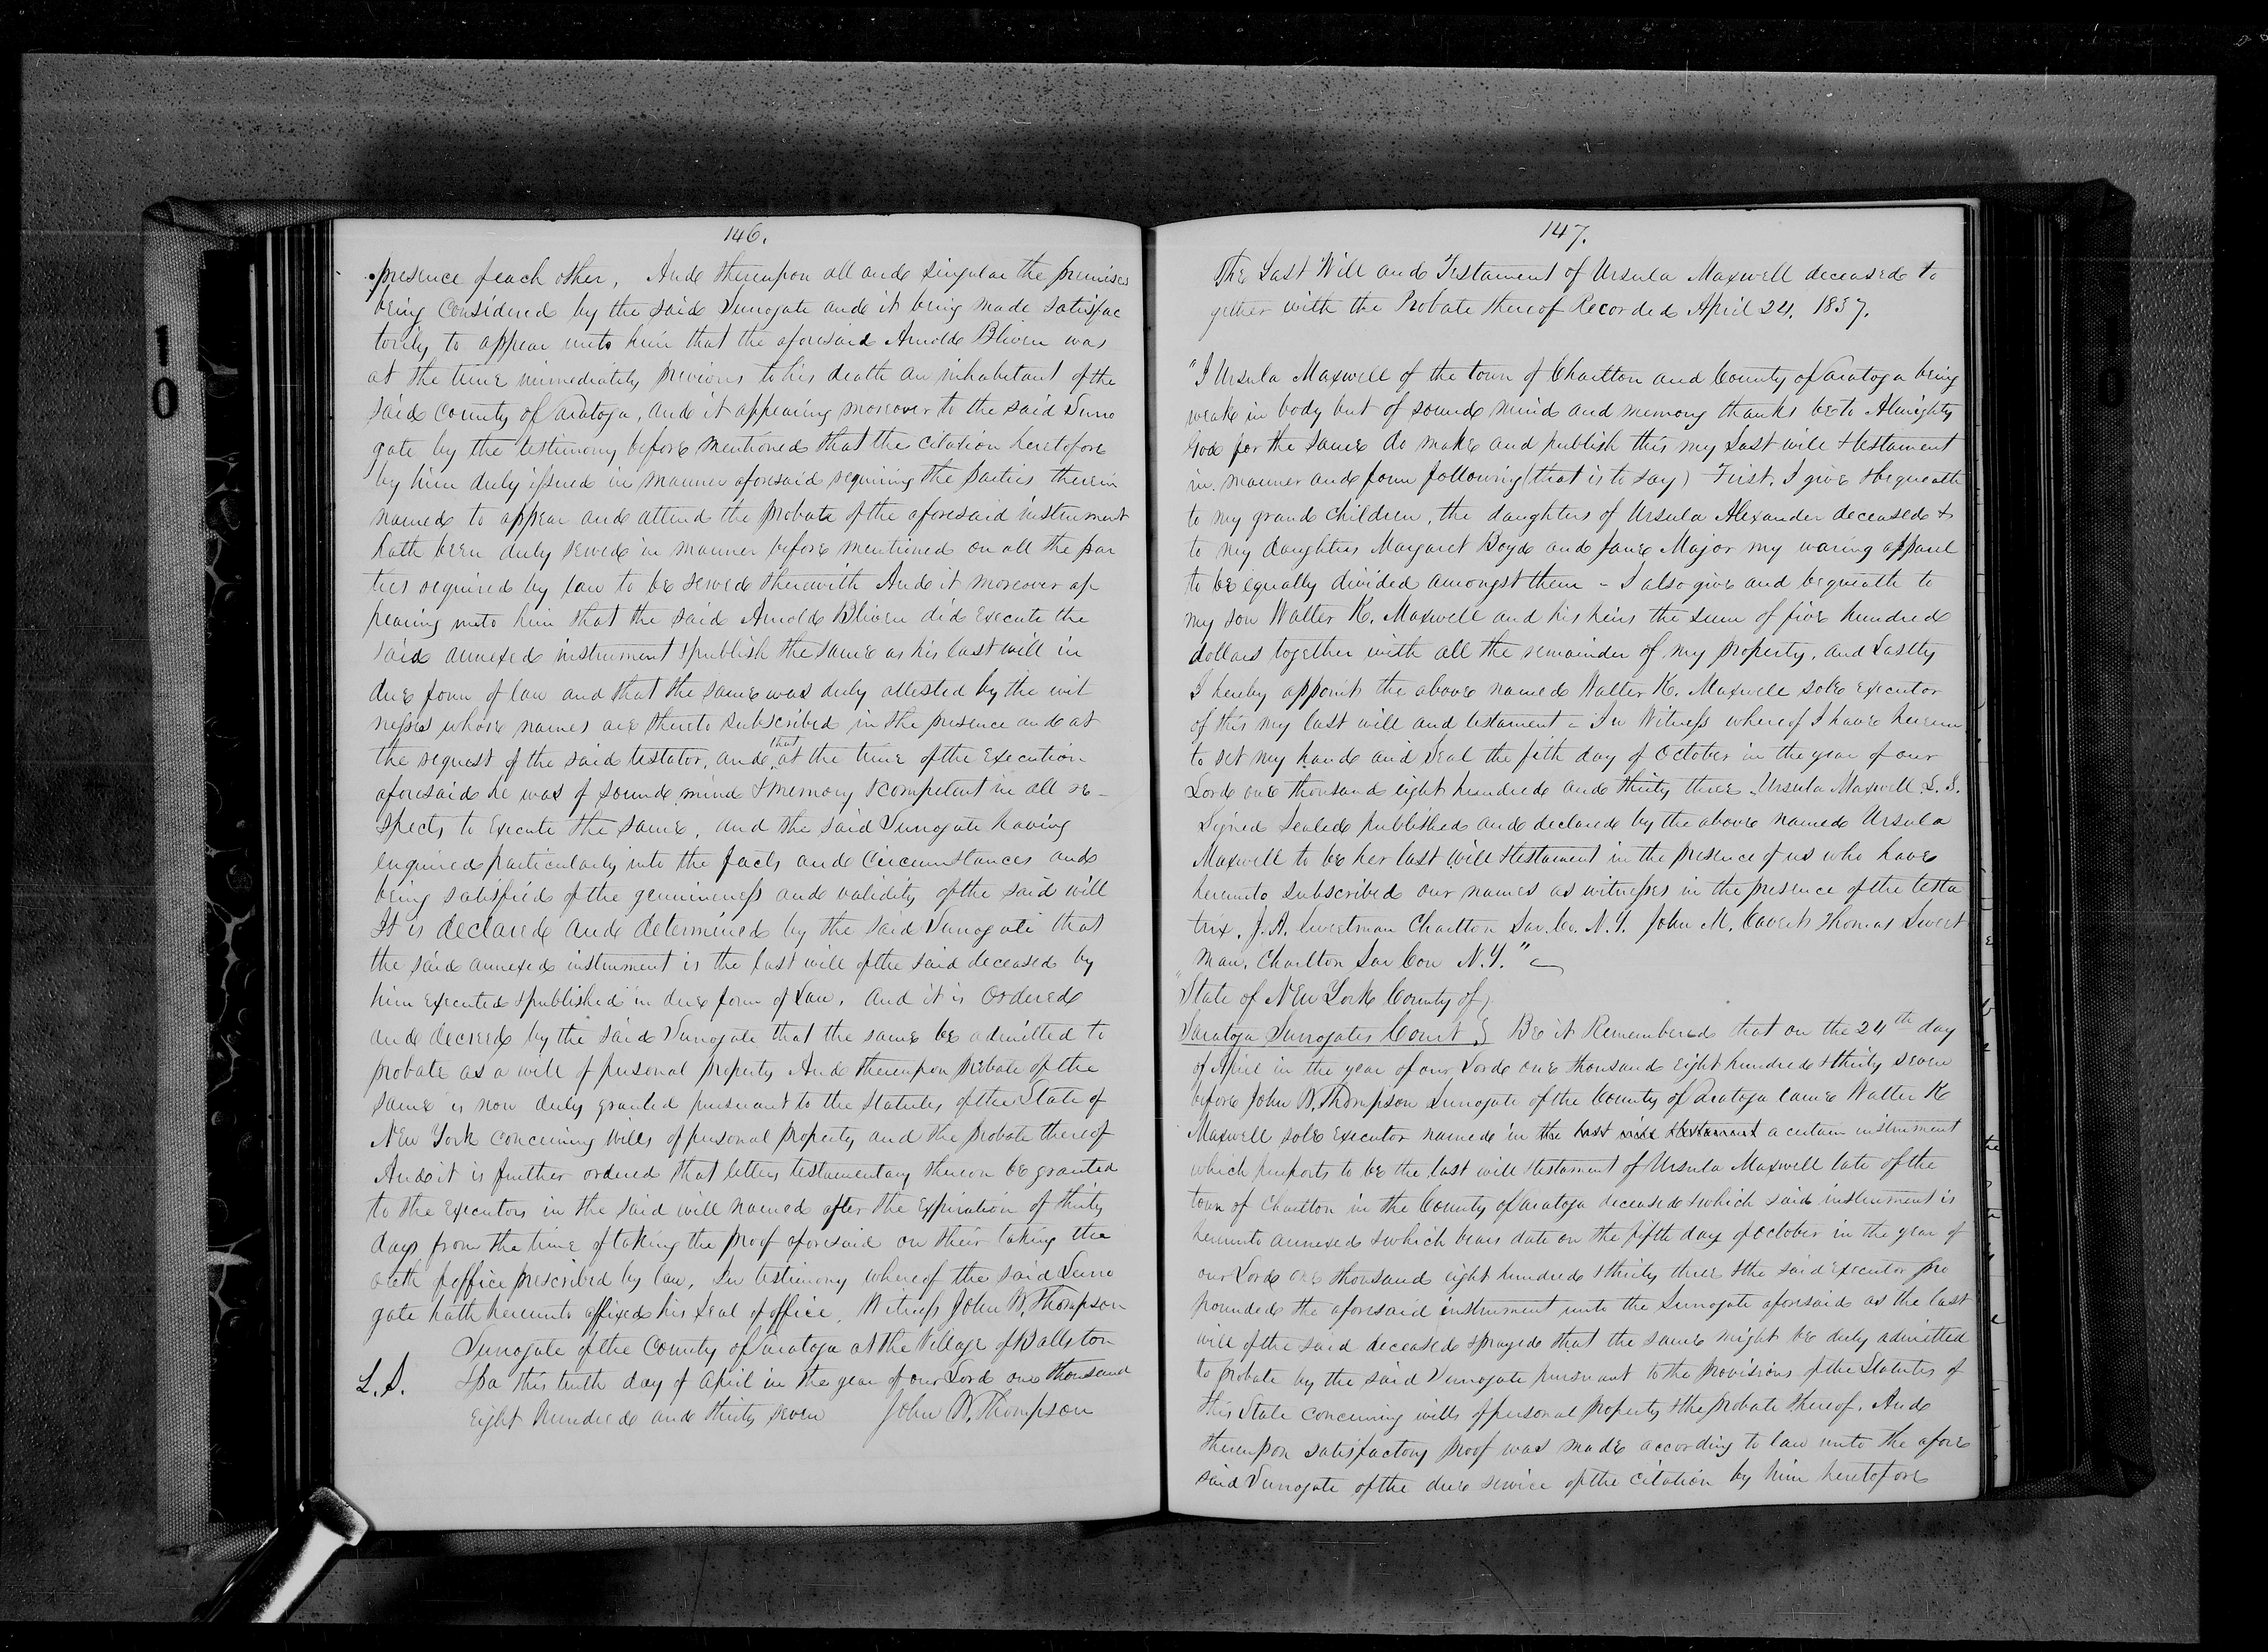 146.
presence of each other, And thereupon all and singular the premises
being considered by the said Surrogate and it being made satisfac
torily to appear unto him that the aforesaid Arnold Bliven was
at the time immediately previous to his death an inhabitant of the
said County of Saratoga, and it appearing moreover to the said Surro
gate by the testimony before mentioned that the citation heretofore
by him duly issued in manner aforesaid requiring the parties therein
named to appear and attend the probate of the aforesaid instrument
hath been duly served in manner before mentioned on all the par
ties required by law to be served therewith And it moreover ap
pearing unto him that the said Arnold Bliven did execute the
said annexed instrument & publish the same as his last will in
due form of law and that the same was duly attested by the wit
nesses whose names are thereto subscribed in the presence and at
the request of the said testator, and that at the time of the execution
aforesaid he was of sound mind & memory & competent in all re-
spects to execute the same, and the said Surrogate having
enquired particularly into the facts and circumstances and
being satisfied of the genuineness and validity of the said will
It is declared and determined by the said Surrogate that
the said annexed instrument is the last will of the said deceased by
him executed & published in due form of Law, and it is ordered
and decreed by the said Surrogate that the same be admitted to
probate as a will of personal property And thereupon Probate of the
same is now duly granted pursuant to the statutes of the State of
New York concerning wills of personal property and the probate thereof
And it is further ordered that letters testamentary thereon be granted
to the executors in the said will named after the expiration of thirty
days from the time of taking the proof aforesaid on their taking the
oath of office prescribed by law, In testimony whereof the said Surro
gate hath hereunto affixed his seal of office, Witness John W. Thompson
Surrogate of the County of Saratoga at the Village of Ballston
L.S. Spa this tenth day of April in the year of our Lord one thousand
eight hundred and thirty seven John W. Thompson
147.
The Last Will and Testament of Ursula Maxwell deceased to
gether with the Probate thereof Recorded April 24. 1837.
"I Ursula Maxwell of the town of Charlton and County of Saratoga being
weak in body but of sound mind and memory thanks be to Almighty
God for the same do make and publish this my Last will & testament
in manner and form following (that is to say) First. I give & bequeath
to my grand children, the daughters of Ursula Alexander deceased &
to my daughters Margaret Boyd and Jane Major my waring apparel
to be equally divided amongst them - I also give and bequeath to
my son Walter K. Maxwell and his heirs the sum of five hundred
dollars together with all the remainder of my property, and Lastly
I hereby appoint the above named Walter K. Maxwell sole executor
of this my last will and testament - In Witness whereof I have hereun
to set my hand and seal the fith day of October in the year of our
Lord one thousand eight hundred and thirty three. Ursula Maxwell L.S.
Signed sealed published and declared by the above named Ursula
Maxwell to be her last will & testament in the presence of us who have
hereunto subscribed our names as witnesses in the presence of the testa
trix. J.A. Sweetman Charlton Sar. Co. N.Y. John M. Cavert Thomas Sweet
man, Charlton Sar Cou N.Y."
"State of New York County of }
Saratoga Surrogates Court } Be it Remembered that on the 24th day
of April in the year of our Lord one thousand eight hundred & thirty seven
before John W. Thompson Surrogate of the County of Saratoga came Walter K
Maxwell sole executor named in the last will & testament a certain instrument
which purports to be the last will & testament of Ursula Maxwell late of the
town of Charlton in the County of Saratoga deceased & which said instrument is
hereunto annexed & which bears date on the fifth day of October in the year of
our Lord one thousand eight hundred & thirty three & the said executor pro
pounded the aforesaid instrument unto the Surrogate aforesaid as the last
will of the said deceased & prayed that the same might be duly admitted
to probate by the said Surrogate pursuant to the provisions of the Statutes of
this State concerning wills of personal property & the probate thereof. And
thereupon satisfactory proof was made according to law unto the afore
said Surrogate of the due service of the citation by him heretofore
10